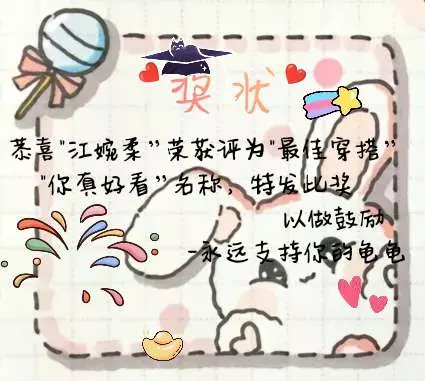 奖状
恭喜"江婉柔”荣获评为"最佳穿搭”
"你真好看”名称，特发此奖
以做鼓励
-永远支持你的龟龟